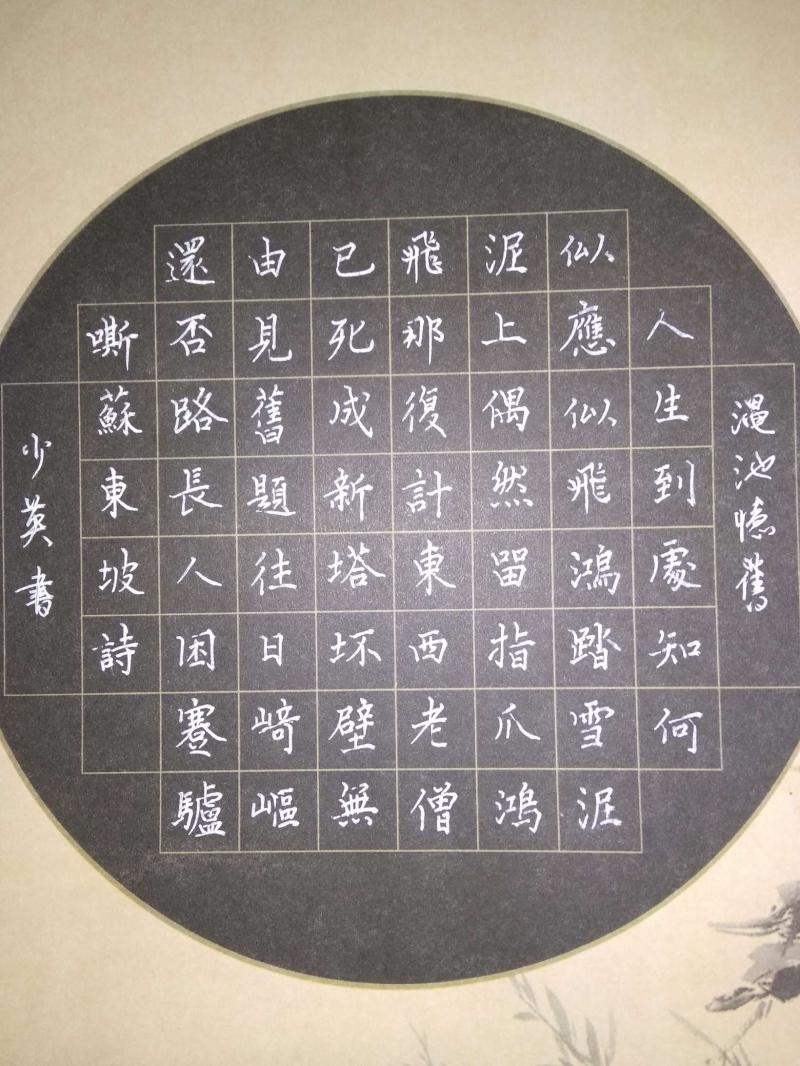 渑池憶舊
人生到處知何
似應似飛鴻踏雪泥
泥上偶然留指爪鴻
飛那復計東西老僧
已死成新塔坏壁無
由見舊題往日崎嶇
還否路長人困蹇驢
嘶蘇東坡詩
少英書